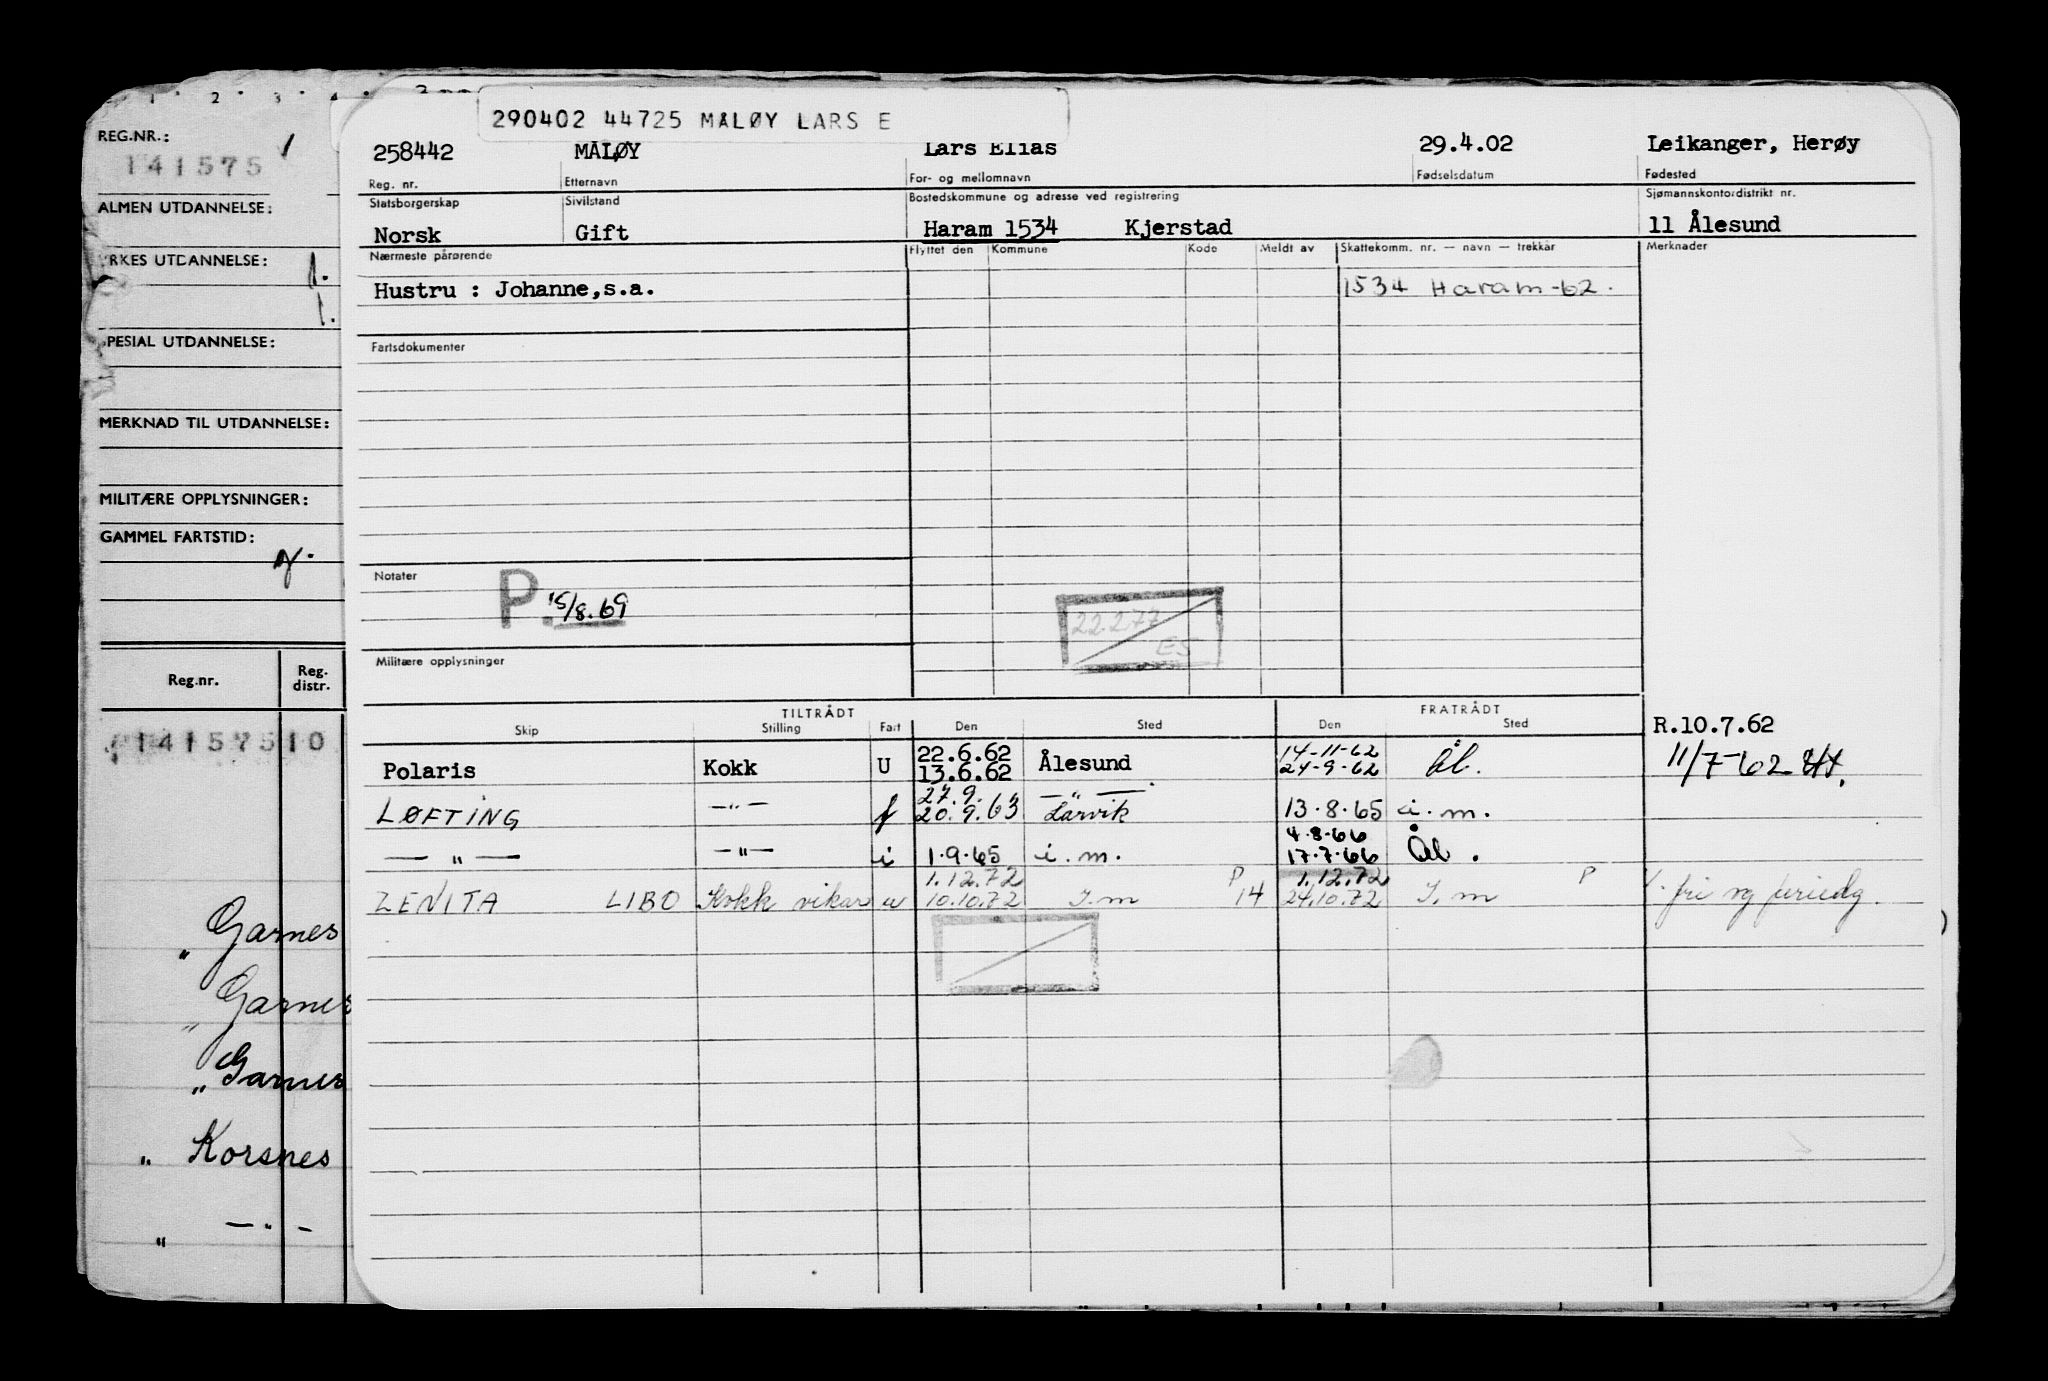 1 · 2 · 3 · 4 ·
REG.NR.:
141575
ALMEN UTDANNELSE:
RKES UTDANNELSE:
PESIAL UTDANNELSE:
MERKNAD TIL UTDANNELSE:
MILITÆRE OPPLYSNINGER:
GAMMEL FARTSTID:
Reg.nr. Reg. distr.
141575 10
" Garnes
" Garnes
" Garnes
" Korsnes
" — " —
290402 44725 MÅLØY LARS E
258442 MÅLØY Lars Elias 29.4.02 Leikanger, Herøy
Reg. nr. Etternavn For- og mellomnavn Fødselsdatum Fødested
Statsborgerskap Sivilstand Bostedskommune og adresse ved registrering Sjømannskontordistrikt nr.
Norsk Gift Haram 1534 Kjerstad 11 Ålesund
Nærmeste pårørende Flyttet den Kommune Kode Meldt av Skattekomm. nr. — navn — trekkår Merknader
Hustru : Johanne,s.a. 1534 Haram-62.
Fartsdokumenter
Notater
P. 15/8.69
22.2.77
ES
Militære opplysninger
TILTRÅDT FRATRÅDT
Skip Stilling Fart Den Sted Den Sted
R.10.7.62
22.6.62 14-11-62
Polaris Kokk U 13.6.62 Ålesund 24-9-62 Ål. 11/7-62
27.9. — " —
LØFTING — " — f 20.9.63 Larvik 13.8.65 i.m.
4.8.66
— " — — " — i 1.9.65 i.m. 17.7.66 Ål.
1.12.72 P 1.12.72 P
ZENITA LIBO Kokk vikar u 10.10.72 I.m 14 24.10.72 I.m